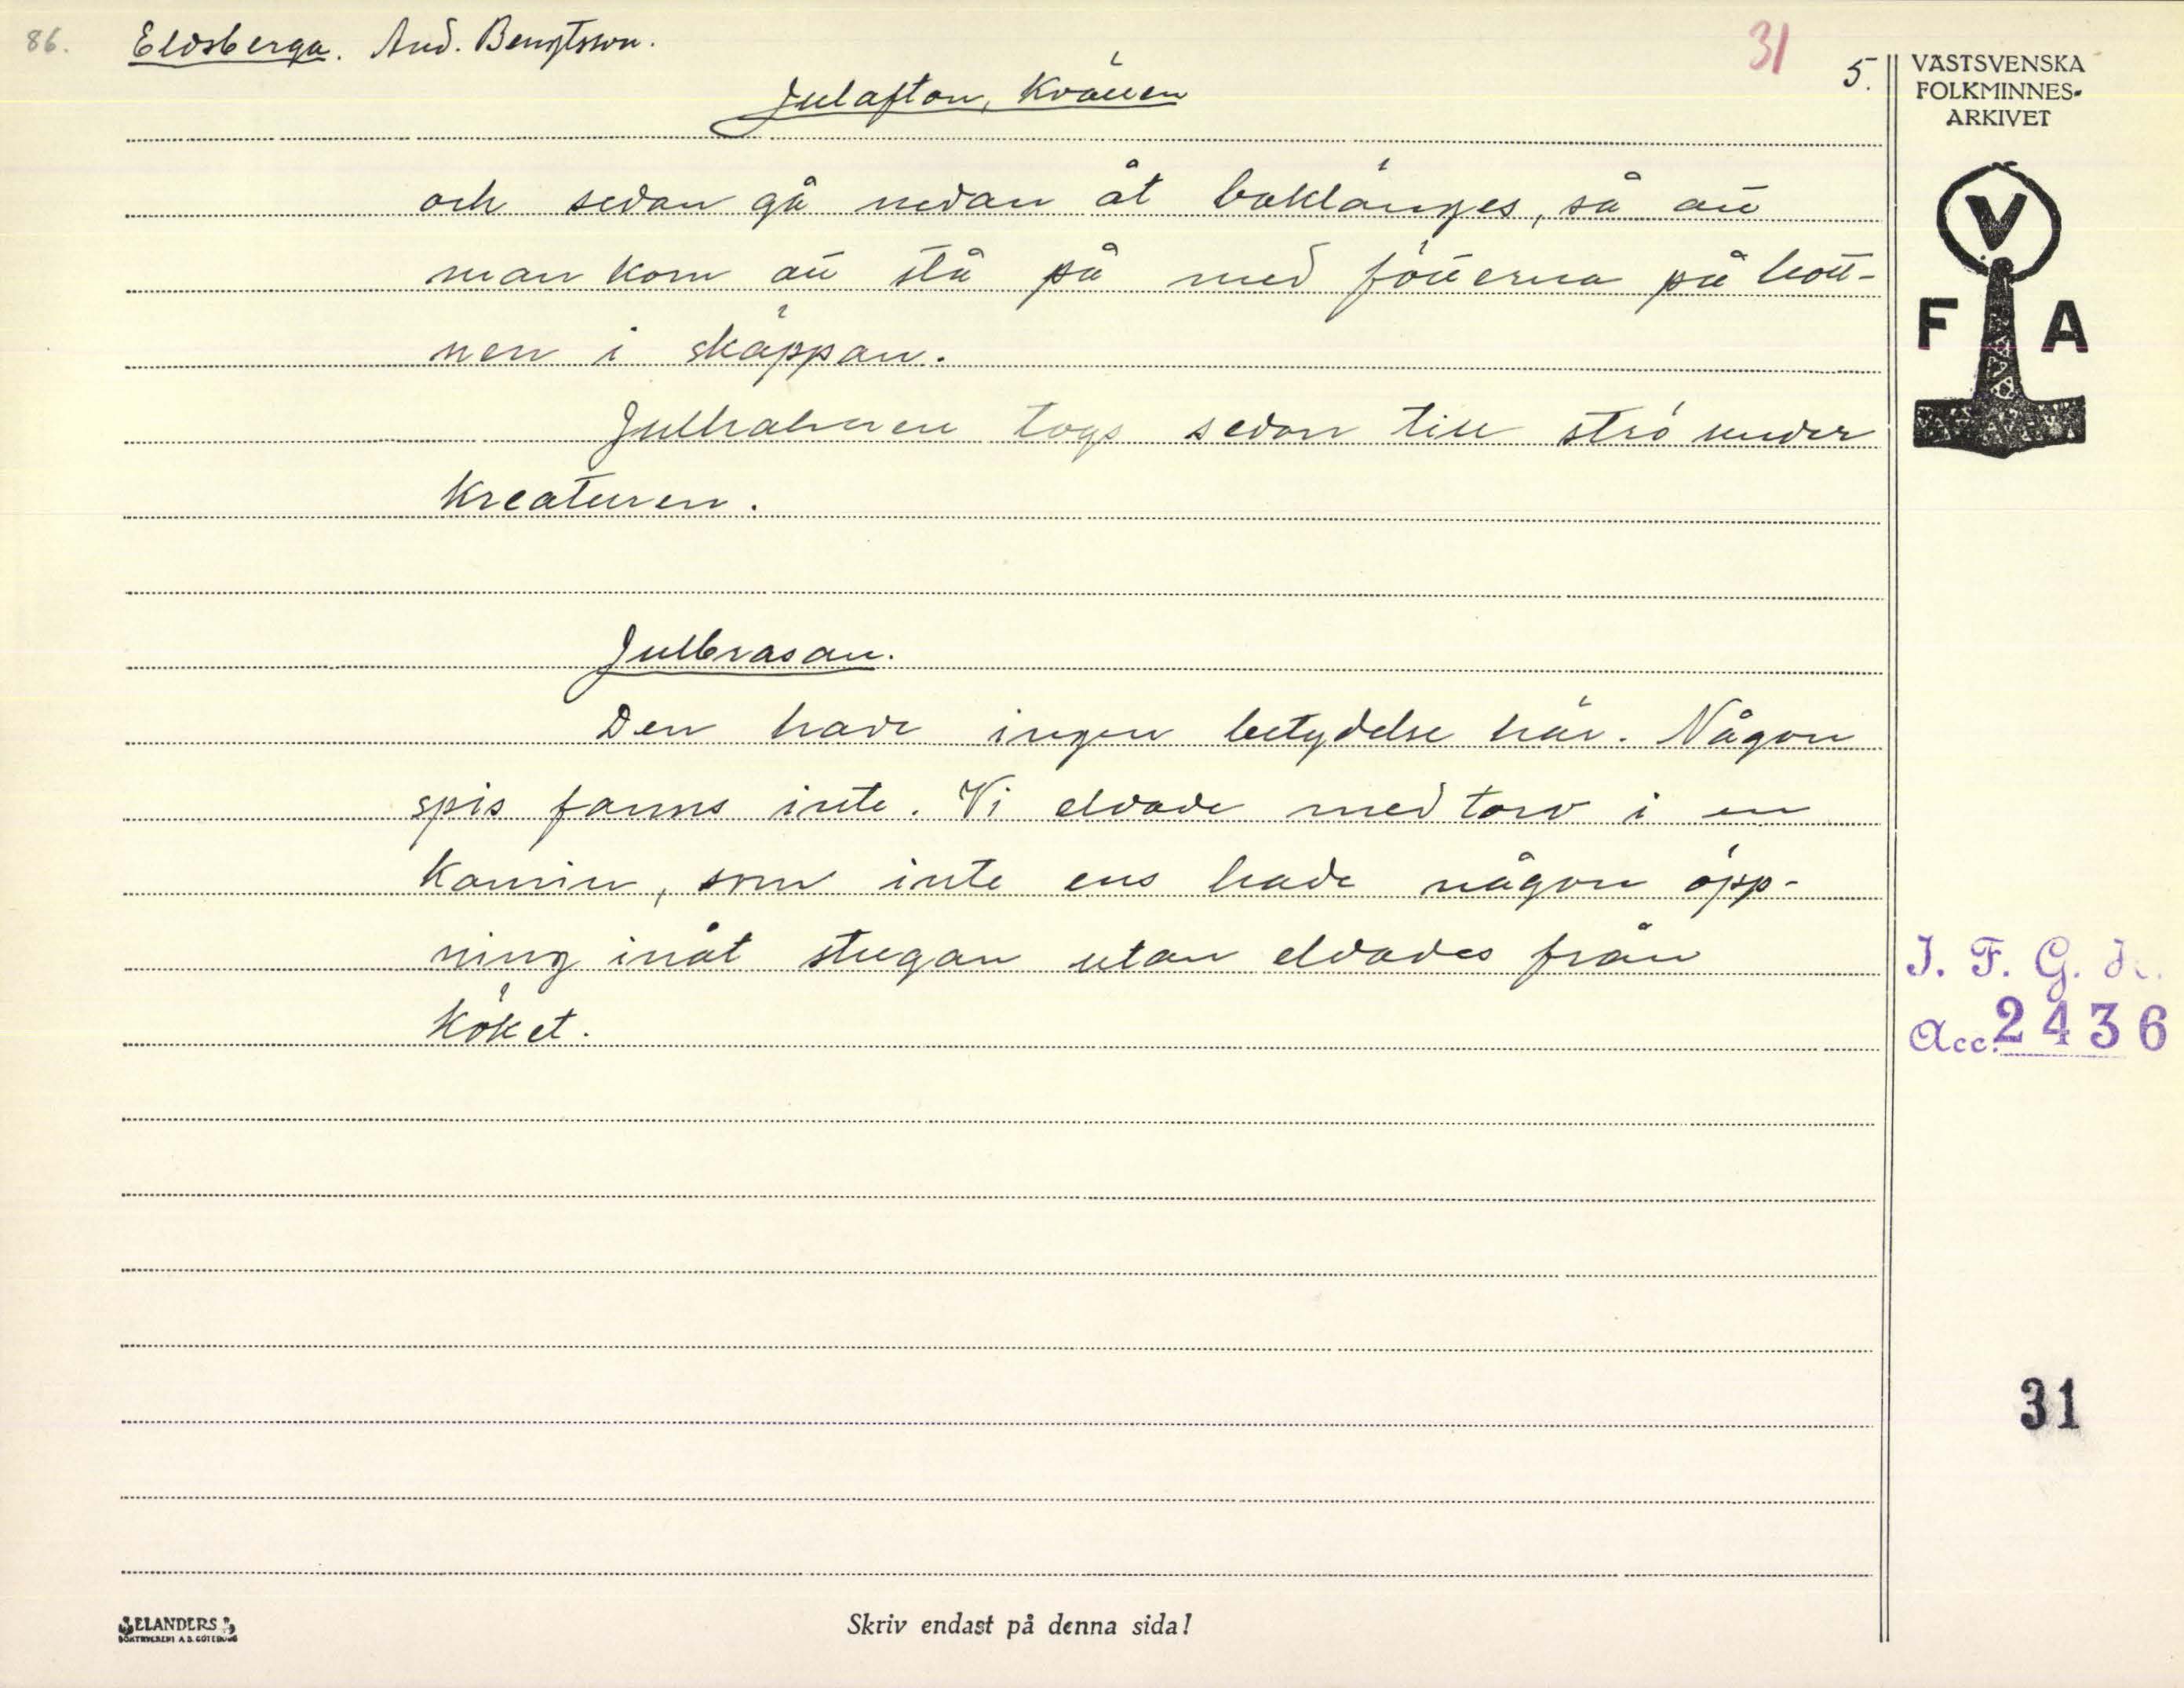 86. Eldsberga. And. Bengtsson. 31 5.
Julafton, Kvällen
och sedan gå nedan åt baklänges, så att
man kom att stå på med fötterna på bott-
nen i skäppan.
Julhalmen togs sedan till strö under
kreaturen.
Julbrasan.
Den hade ingen betydelse här. Någon
spis fanns inte. Vi eldade med torv i en
kamin, som inte ens hade någon öpp-
ning inåt stugan utan eldades från
köket.
VÄSTSVENSKA
FOLKMINNES-
ARKIVET
V
F A
I. F. G. H.
Acc. 2436
31
ELANDERS
BOKTRYCKERI A.B. GÖTEBORG
Skriv endast på denna sida!